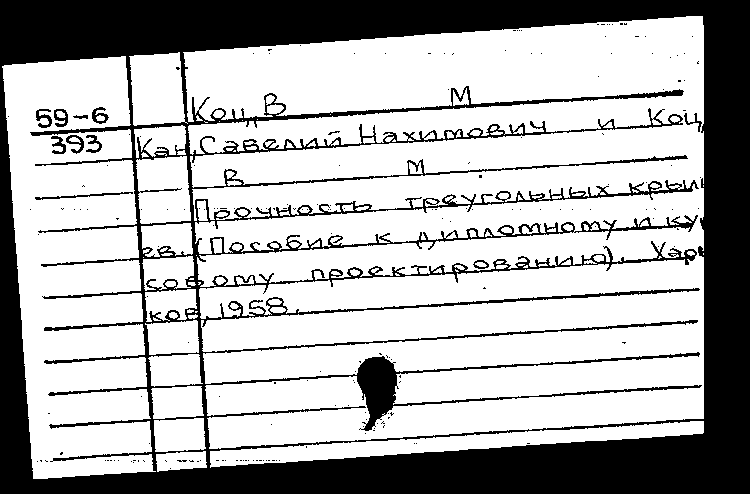 59-6 Коц, В М
393 Кан, Савелий Нахимович и Коц,
В М
Прочность треугольных крыль
ев. (Пособие к дипломному и кур
совому проектированию). Харь
ков, 1958.